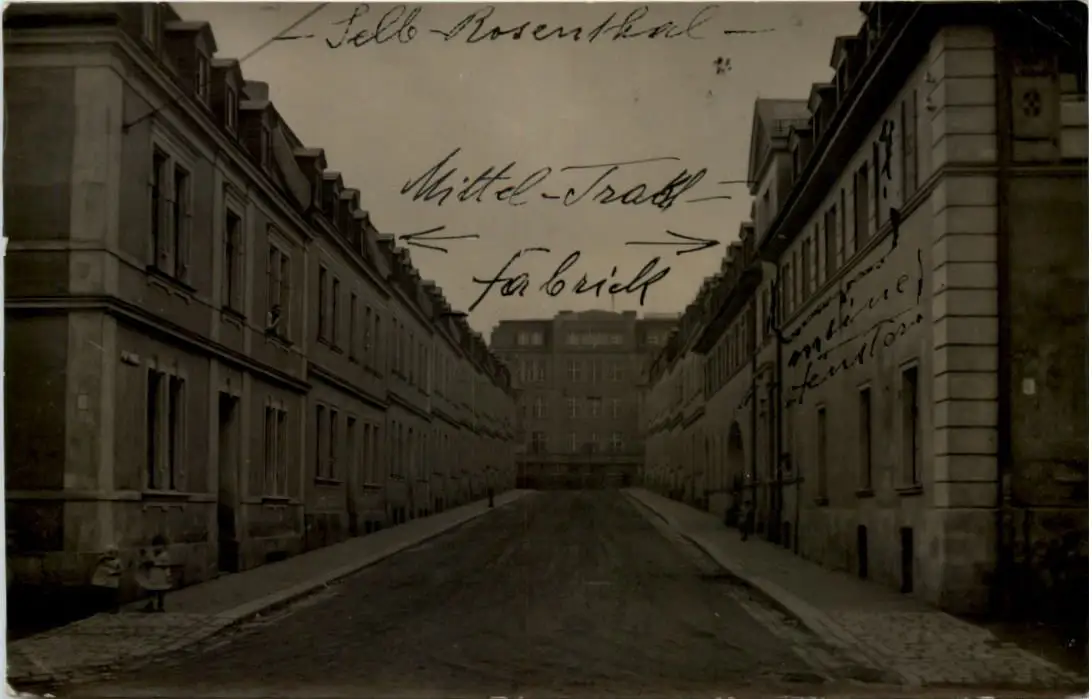 — Selb-Rosenthal —
Mittel-Trakt-
Fabrick
meine
fenster